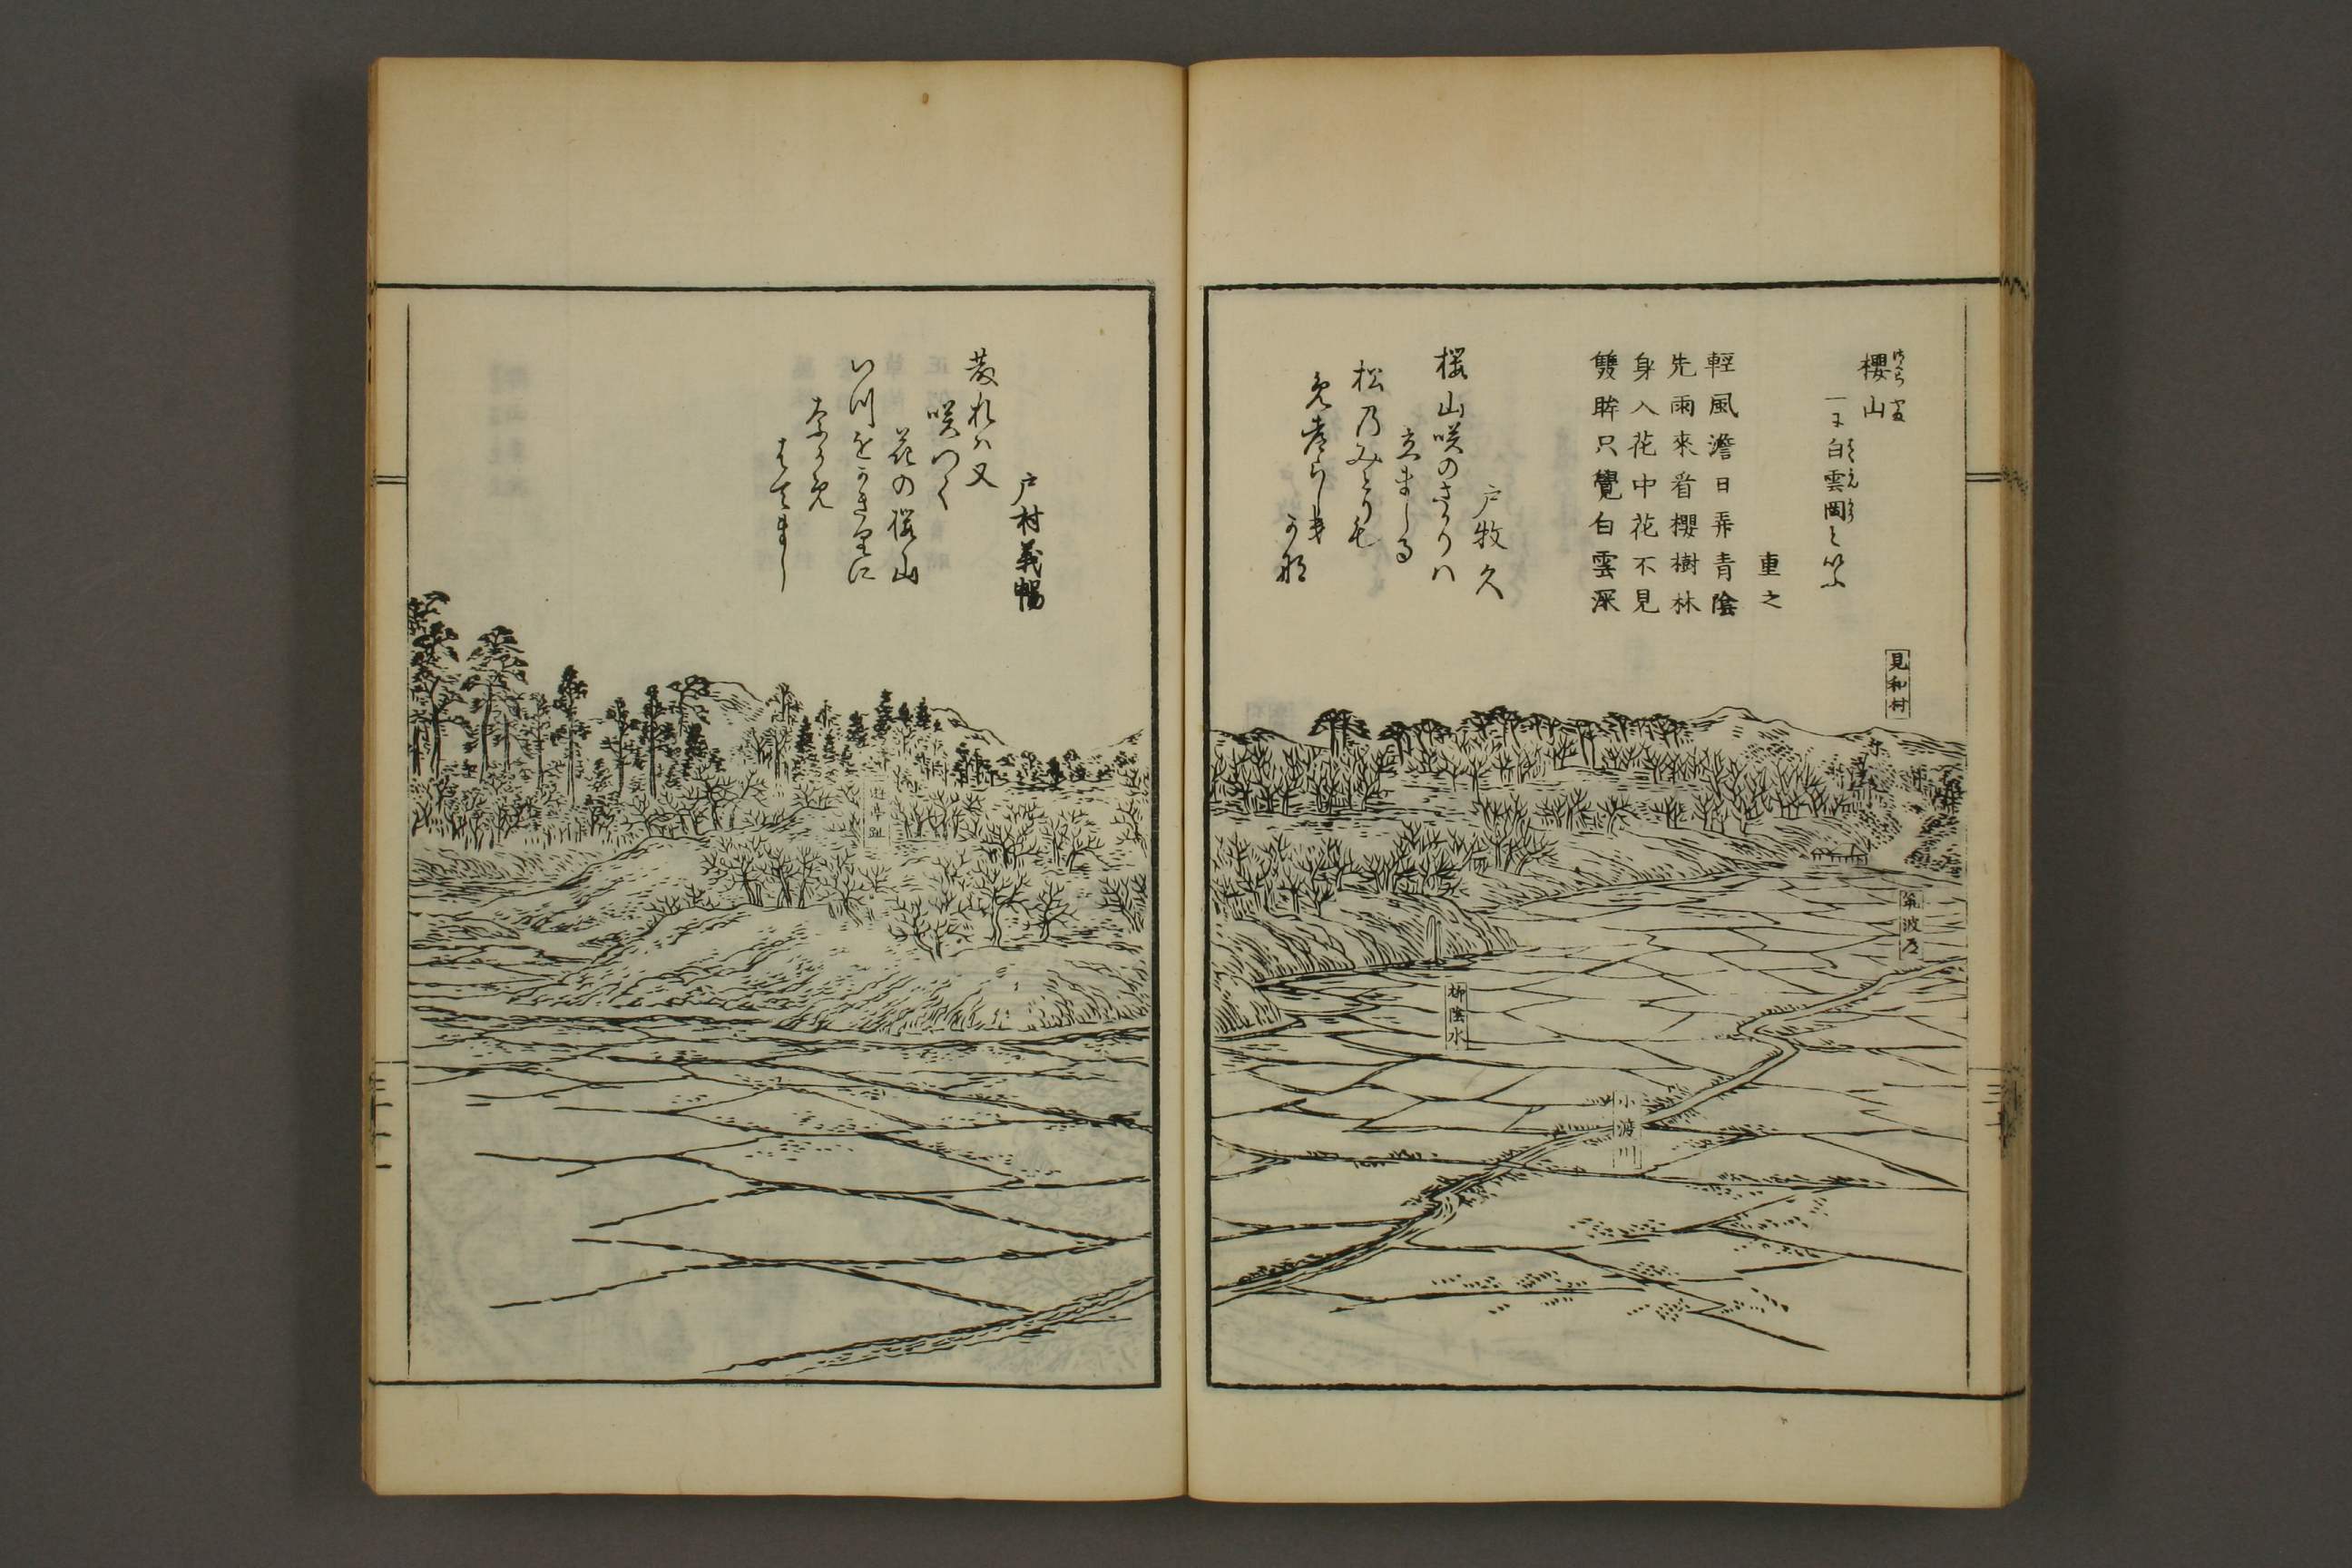 櫻山
さくら やま
一に白雲岡といふ
重之
輕風澹日弄青陰
先雨來看櫻樹林
身入花中花不見
雙眸只覺白雲深
戸牧久
桜山咲のさかりハ
立ましる
松乃みとりも
免都らしき
可那
見和村
筑波
柳陰水
小渡川
戸村義暢
散れハ又
咲つく
花の桜山
いつをかきりに
なかめ
はてまし
三十一